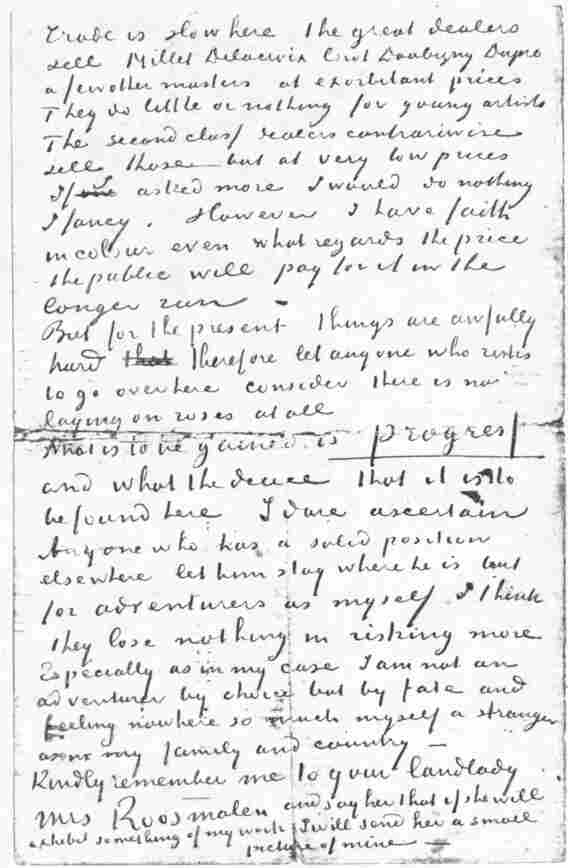 Trade is slow here The great dealers
sell Millet Delacroix Corot Daubigny Dupré
a few other masters at exorbitant prices
They do little or nothing for young artists
The second class dealers contrariwise
sell those but at very low prices
If asked more I would do nothing
I fancy. However I have faith
in colour even what regards the price
the public will pay for it in the
longer run –
But for the present things are awfully
hard that therefore let anyone who risks
to go over here consider there is no
laying on roses at all
What is to be gained is progress
and what the deuce that it is to
be found here I dare ascertain
Anyone who has a solid position
elsewhere let him stay where he is but
for adventurers as myself I think
they lose nothing in risking more
Especially as in my case I am not an
adventurer by choice but by fate and
feeling nowhere so much myself a stranger
as in my family and country –
Kindly remember me to your landlady
Mrs Roosmalen and say her that if she will
exhibit something of my work I will send her a small
picture of mine –